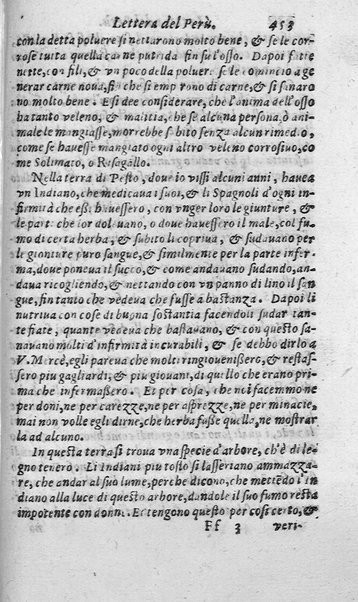 Lettera del Perù. 453
con la detta poluere si nettarono molto bene, & se le cor-
rose tutta quella carne putrida fin su l'osso. Dapoi fitte
nette, con fili, & vn poco della poluer: se le cominciò a ge-
nerar carne noua, fin che si emprono di carne, & si sanaro
no molto bene. E si dee considerare, che l'anima dell'osso
ha tanto veleno, & malitia, che se alcuna persona, ò ani-
male le mangiasse, morrebbe subito senza alcun rimedio,
come se hauesse mangiato ogni altro veleno corrosiuo, co
me Solimato, o Risagallo.
Nella terra di Posto, doue io vissi alcuni anni, haueua
vn Indiano, che medicaua i suoi, & li Spagnoli d'ogni in-
firmità che essi hauessero, con vnger loro le gionture, &
le parti che lor doluano, o doue hauessero il male, col su-
mo di certa herba, & subito li copriua, & sudauano per
le gionture puro sangue, & similmente per la parte infer-
ma, doue poneua il succo, & come andauano sudando, an-
daua ricogliendo, & nettando con vn panno di lino il san
gue, fin tanto che vedeua che fusse a bastanza. Dapoi li
nutriua con cose di buona sostantia facendoli sudar tan-
te fiate, quante vedeua che bastauano, & con questo sa-
nauano molti d'infirmità incurabili, & se debbo dirlo a
V. Mercè, egli pareua che molti ringiouenissero, & restas-
sero piu gagliardi, & piu giouani, di quello che erano pri-
ma che infermassero. Et per cosa, che noi facemmo ne
per doni, ne per carezze, ne per asprezze, ne per minacie,
mai non volle egli dirne, che herba fusse quella, ne mostrar
la ad alcuno.
In questa terra si troua vna specie d'arbore, ch'è di le-
gno tenero. Li Indiani piu tosto si lasseriano ammazza-
re, che andar al suo lume, perche dicono, che mettendo l'in
diano alla luce di questo arbore, dandole il suo fumo resta
impotente con donne. Et tengono questo per cosi certo, &
Ff 3 veri-